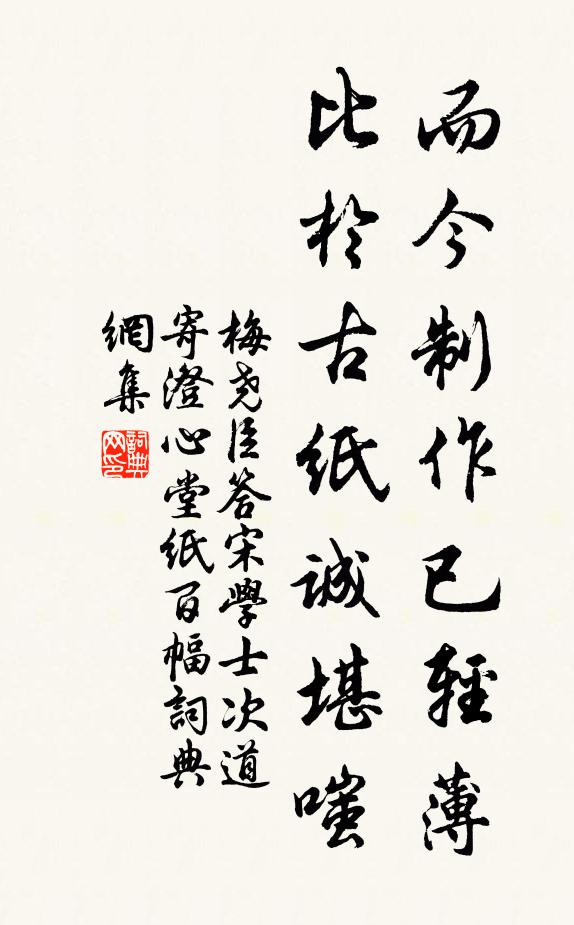 而今制作已輕薄
比於古紙誠堪嗤
梅尧臣答宋學士次道
寄澄心堂紙百幅詞典
網集
詞典网印